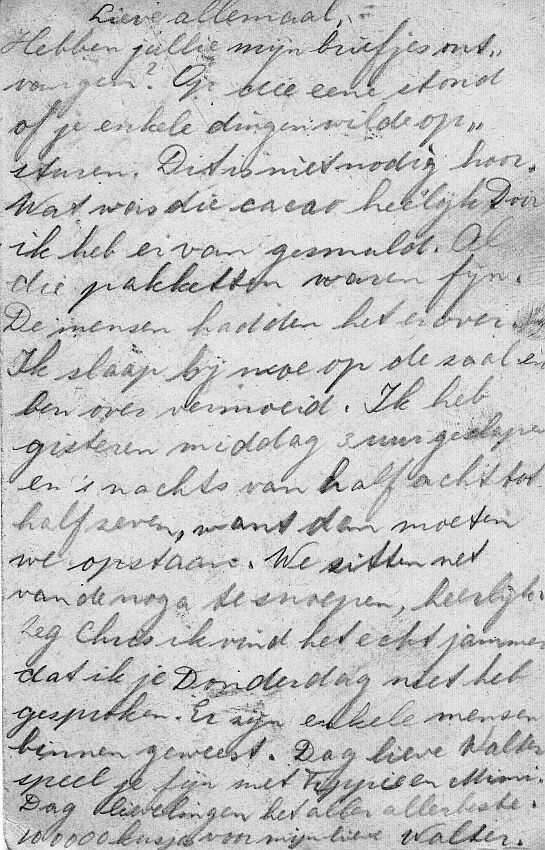 Lieve allemaal,
Hebben jullie mijn briefjes ont„
vangen? Op die eene stond
of je enkele dingen wilde op„
sturen. Dit is niet nodig hoor.
Wat was die cacao heelijk Door
ik heb er van gesmuld. Al
die pakketten waren fijn.
De mensen hadden het erover.
Ik slaap bij moe op de zaal en
ben over vermoeid. Ik heb
gisteren middag 3 uur geslapen
en 's nachts van half acht tot
half zeven, want dan moeten
we opstaan. We zitten net
van de noga te snoepen, heerlijk
zeg Chris ik vind het echt jammer
dat ik je Donderdag niet heb
gesproken. Er zijn enkele mensen
binnen geweest. Dag lieve Walter
speel je fijn met en Mimi.
Dag lievelingen het aller allerbeste.
100000 kusjes voor mijn lieve Walter.